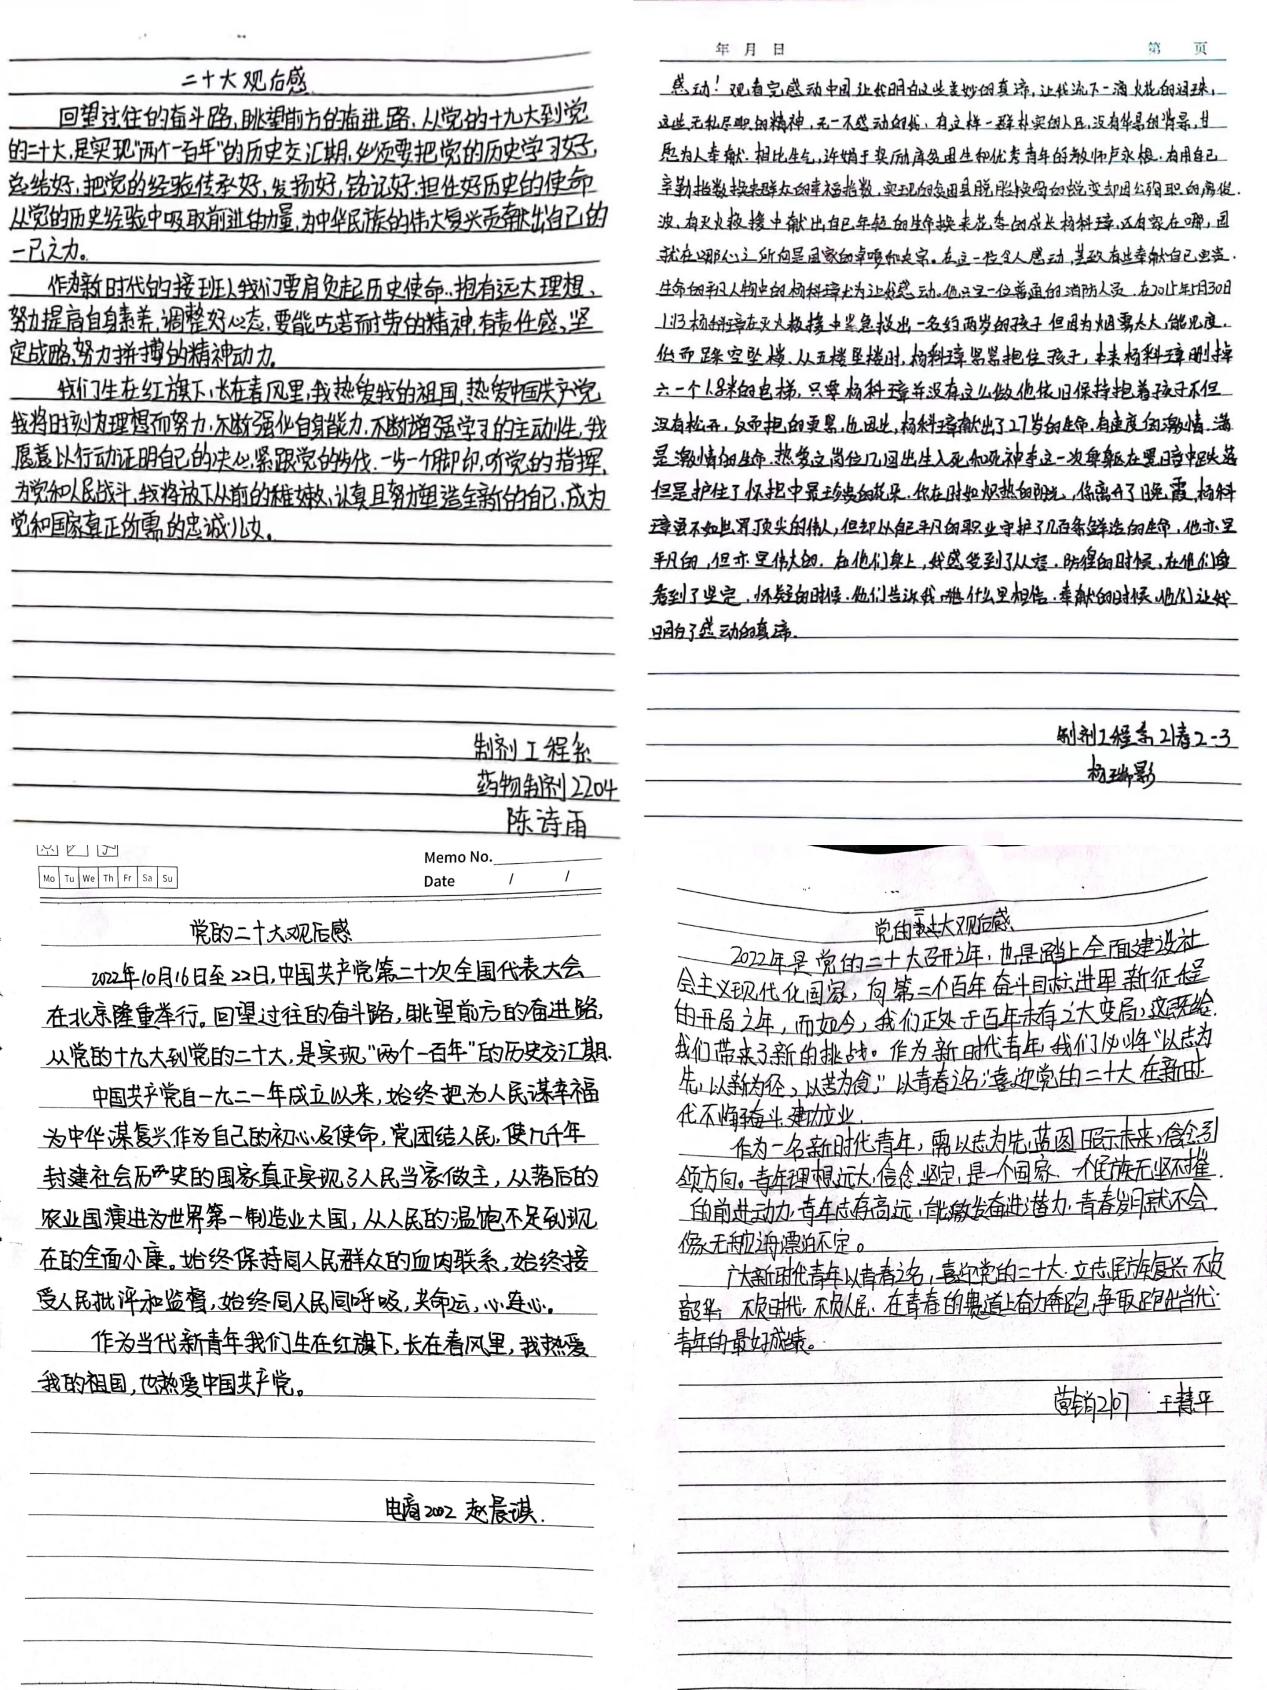 二十大观后感
回望过往的奋斗路,眺望前方的奋进路.从党的十九大到党
的二十大,是实现"两个一百年"的历史交汇期,必须要把党的历史学习好,
总结好,把党的经验传承好,发扬好,铭记好.担任好历史的使命
从党的历史经验中吸取前进的力量,为中华民族的伟大复兴而奉献出自己的
一己之力。
作为新时代的接班人我们要肩负起历史使命.抱有远大理想、
努力提高自身素养,调整好心态,要能吃苦耐劳的精神,有责任感、坚
定战略,努力拼搏的精神动力。
我们生在红旗下,长在春风里,我热爱我的祖国,热爱中国共产党
我将时刻为理想而努力,不断强化自身能力,不断增强学习的主动性,我
愿意以行动证明自己的决心,紧跟党的步伐.一步一个脚印,听党的指挥,
为党和人民战斗,我将放下从前的稚嫩,认真且努力塑造全新的自己,成为
党和国家真正所需的忠诚儿女。
制剂工程系
药物制剂2204
陈诗雨
年 月 日 第 页
感动!观看完感动中国让我明白这些美妙的真谛,让我流下一滴火花的泪珠,
这些无私尽职的精神,无一不感动的我.有这样一群朴实的人民,没有华易的背景,甘
愿为人奉献.相比生气,许倩于奖励库贫困生和优秀青年的教师卢永根.有用自己
辛勤指数换来群众的幸福指数,实现的贫困县脱胎换骨的蜕变却因公殉职的
波,有灭火救援中献出自己年轻的生命换来花季的成长杨科璋,还有家在哪,国
就在哪
生命的平凡人物中的杨科璋尤为让我感动.他只是一位普通的消防人员.在2015年5月30日
1:13杨科璋在灭火救援中紧急救出一名约两岁的孩子但因为烟雾太大,能见度.
低而踩空坠楼.从五楼坠楼时,杨科璋紧紧抱住孩子,本来杨科璋
六一个1.8米的电梯,只要杨科璋并没有这么做他依旧保持抱着孩子不但
没有松开,反而抱的更紧,也因此,杨科璋献出了27岁的生命.有速度的激情.满
是激情的生命.热爱这岗位几回出生入死和死神
但是护住了怀抱中最珍贵的花朵.你在时如炽热的阳光,你离开了晚霞,杨科
璋虽不如世界顶尖的伟人,但却以自己平凡的职业守护了几百条鲜活的生命,他亦是
平凡的,但亦是伟大的.在他们身上,我感受到了从容.彷徨的时候,在他们身
看到了坚定,怀疑的时候.他们告诉我,什么是相信.奉献的时候,他们让我
明白了感动的真谛.
制剂工程系21春2-3
杨瑞影
Memo No.
Mo Tu We Th Fr Sa Su
Date / /
党的二十大观后感
2022年10月16日至22日,中国共产党第二十次全国代表大会
在北京隆重举行。回望过往的奋斗路,眺望前方的奋进路,
从党的十九大到党的二十大,是实现"两个一百年"的历史交汇期.
中国共产党自一九二一年成立以来,始终把为人民谋幸福
为中华谋复兴作为自己的初心及使命,党团结人民,使几千年
封建社会历史的国家真正实现了人民当家做主,从落后的
农业国演进为世界第一制造业大国,从人民的温饱不足到现
在的全面小康。始终保持同人民群众的血肉联系,始终接
受人民批评和监督,始终同人民同呼吸,共命运,心连心。
作为当代新青年我们生在红旗下,长在春风里,我热爱
我的祖国,也热爱中国共产党。
电商2002 赵晨琪.
党的二十大观后感
2022年是党的二十大召开之年,也是踏上全面建设社
会主义现代化国家,向第二个百年奋斗目标进军新征程
的开局之年,而如今,我们正处于百年未有之大变局,这既给
我们带来了新的挑战。作为新时代青年,我们必将"以志为
先,以新为径,以苦为食,"以青春之名,喜迎党的二十大在新时
代不懈奋斗,建功立业.
作为一名新时代青年,需以志为先,蓝图昭示未来,信念引
领方向。青年理想远大,信念坚定,是一个国家.一个民族无坚不摧
的前进动力.青年志存高远,能激发奋进潜力,青春岁月就不会
像无舵之舟漂泊不定。
广大新时代青年以青春之名,喜迎党的二十大.立志民族复兴,不负
韶华,不负时代,不负人民.在青春的赛道上奋力奔跑,争取跑出当代
青年的最好成绩。
营销2107 王慧平